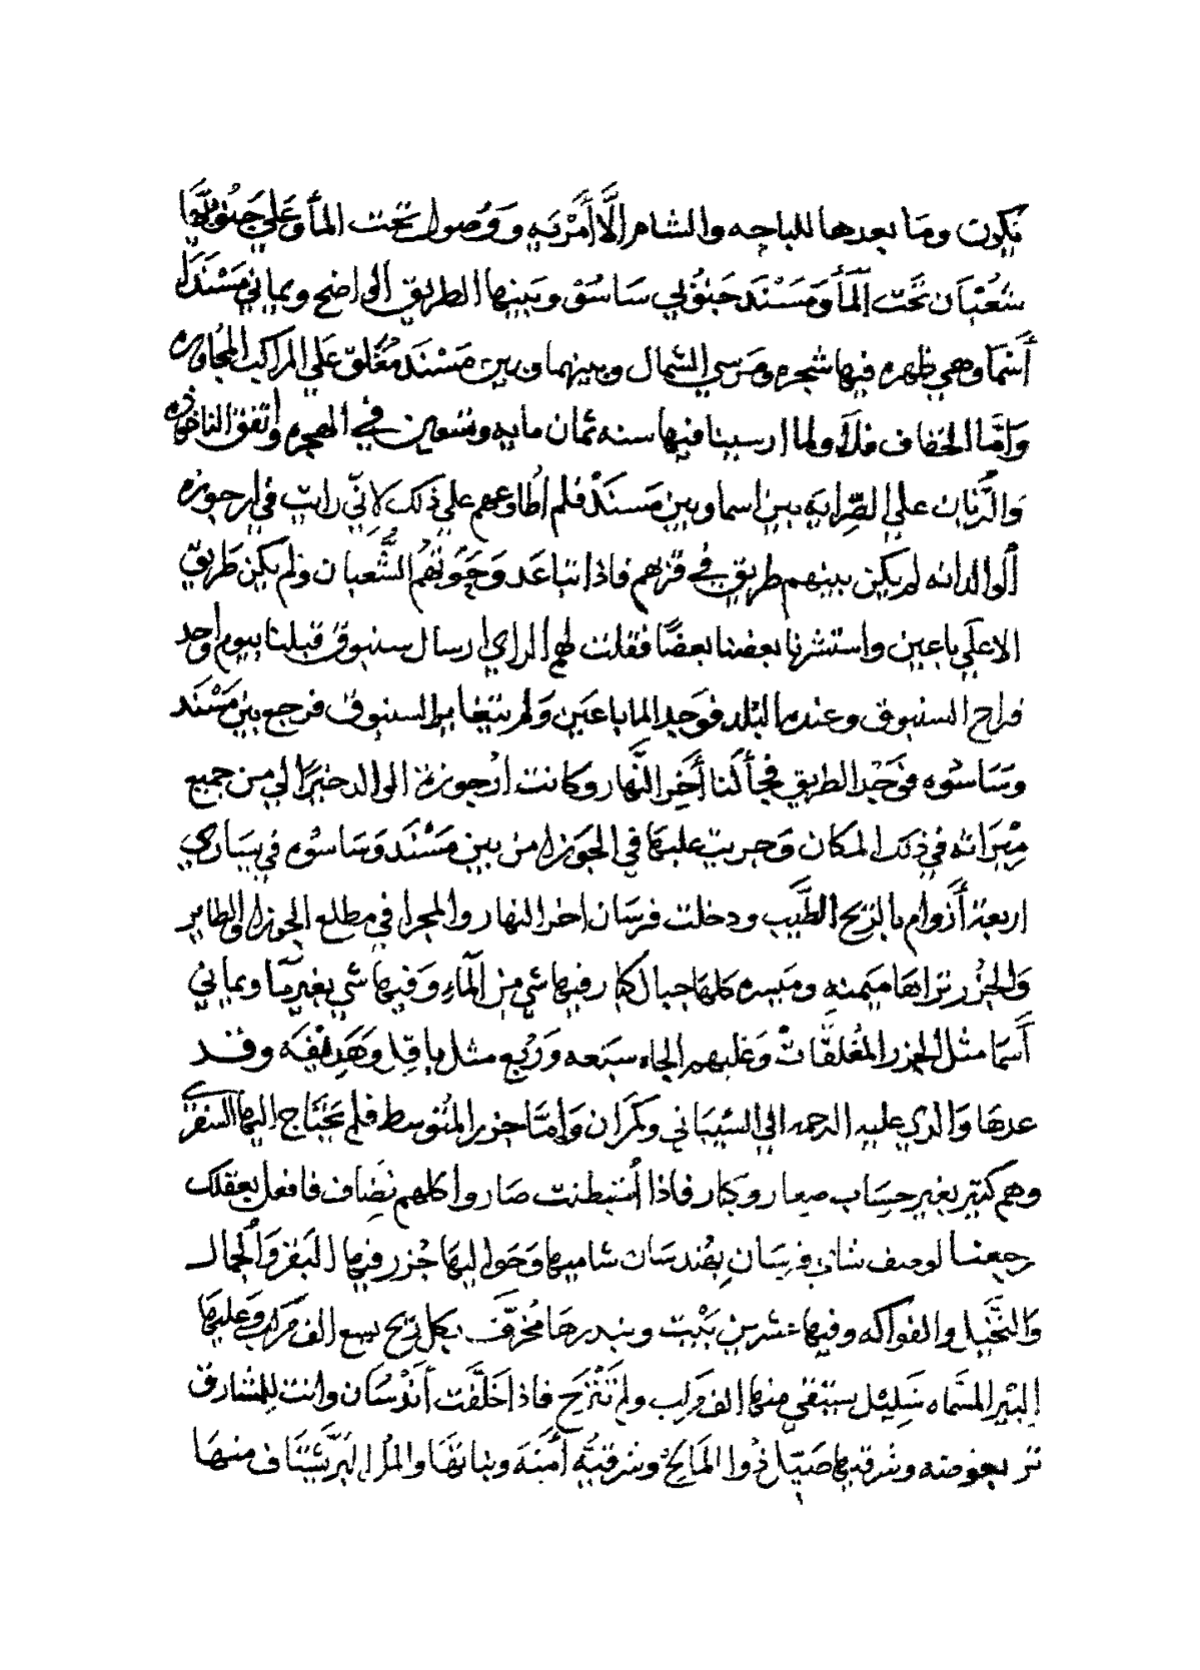 تكون وما بعدها للباحه والشام الا أمرنه ووصول تحت الماء وعلي جنوبيها
شعبان تحت الماء ومسند جنوبي ساسوق وبينها الطريق الواضح ويماني مسند
أسما وهي ظهره فيها شجره ومرسي الشمال وبينهما وبين مسند مغلق علي المراكب المجاوره
وامّا الخفاف فلا ولما ارسينا فيها سنه ثمان مايه وتسعين في الهجره واتفق الناخوذه
والرّبان علي الصراية بين اسما وبين مسند فلم اطاوعهم علي ذلك لانّي رايت في ارجوزه
الوالد انه لم يكن بينهم طريق في قربهم فاذا تباعد وحوتهم الشّعبان ولم يكن طريق
الا علي باعين واستشرنا بعضنا بعضًا فقلت لهم الراي ارسال سنبوق قبلنا بيوم واحد
فراح السنبوق وعندهم البلد فوجد الما باعين ولم يتغابر السنبوق فرجع بين مسند
وساسوه فوجد الطريق فجأ لنا أخر النّهار وكانت ارجوزة الوالد خيرًا لي من جميع
ميراثه في ذلك المكان وجريت عليها في الجوزا من بين مسند وساسوه في يساري
اربعة أزوام بالريح الطّيب ودخلت فرسان اخر النهار والمجرا في مطلع الجوزا والطاير
والجزر تراها ميمنه وميسره كلها جبال كبار فيها شي من الماء وفيها شي بغير ما ويماني
أسما مثل الجزر المغلقات وغلبهم الجاه سبعه وربع مثل باقل وهديفه وقد
عدها والدي عليه الرحمه الي السيباني وكمران وامّا جزر المتوسط فلم تحتاج اليها السفرى
وهم كثير بغير حساب صغار وكبار فاذا أستبطنت صاروا كلهم نضاف فافعل بعقلك
رجعنا لوصف شان فرسان بقندسان شاميها وحواليها جزر فيها البقر والجمال
والنّخيل والفواكه وفيها عشرين بيت وبندرها مخرّف بكل ريح يسع الف مركب وعليها
البير المسّماه سليل يستقي منها الف مركب ولم تنزح فاذا خلّفت أندسان وانت للمشارق
تر بعوضه وشرقيها صيّل ذوا المايح وشرقيّه أمنة وبناتها والما الي البر نظاف منها